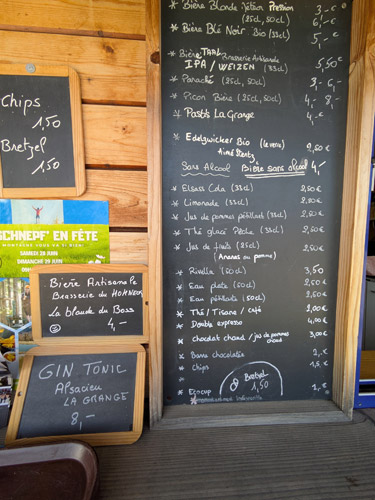 Chips
1,50
Bretzel
1,50
SCHNEPF' EN FÊTE
MONTAGNE VOUS VA SI BIEN
SAMEDI 28 JUIN
DIMANCHE 29 JUIN
Bière Artisanale
Brasserie du HOHNECK
la blonde du Boss
4,-
GIN TONIC
Alsacien
LA GRANGE
8,-
* Bière Blonde Météor Pression 3,- €
(25cl, 50cl) 6,- €
* Bière Blé Noir Bio (33cl) 5,-
* Bière TAAL Brasserie Artisanale
IPA / WEIZEN (33cl) 5,50
* Panaché (25cl, 50cl) 3,- 6,-
* Picon Bière (25cl, 50cl) 4,- 8,-
* Pastis La Grange 4,-
* Edelzwicker Bio (le verre) 2,60€
Aimé Stentz
Sans Alcool Bière sans alcool 4,-
* Elsass Cola (33cl) 2,80€
* Limonade (33cl) 2,50€
* Jus de pommes pétillant (33cl) 2,50€
* Thé glacé Pêche (33cl) 2,80€
* Jus de fruits (25cl) 2,50€
(Ananas ou pomme)
* Rivella (50cl) 3,50
* Eau plate (50cl) 2,50€
* Eau pétillante (50cl) 2,50€
* Thé / Tisane / café 2,00€
* Double expresso 4,00€
* chocolat chaud / jus de pommes chaud 3,00€
* Barre chocolatée 2,-€
* Chips 1,5 €
Bretzel
1,50
* Ecocup 1,-€